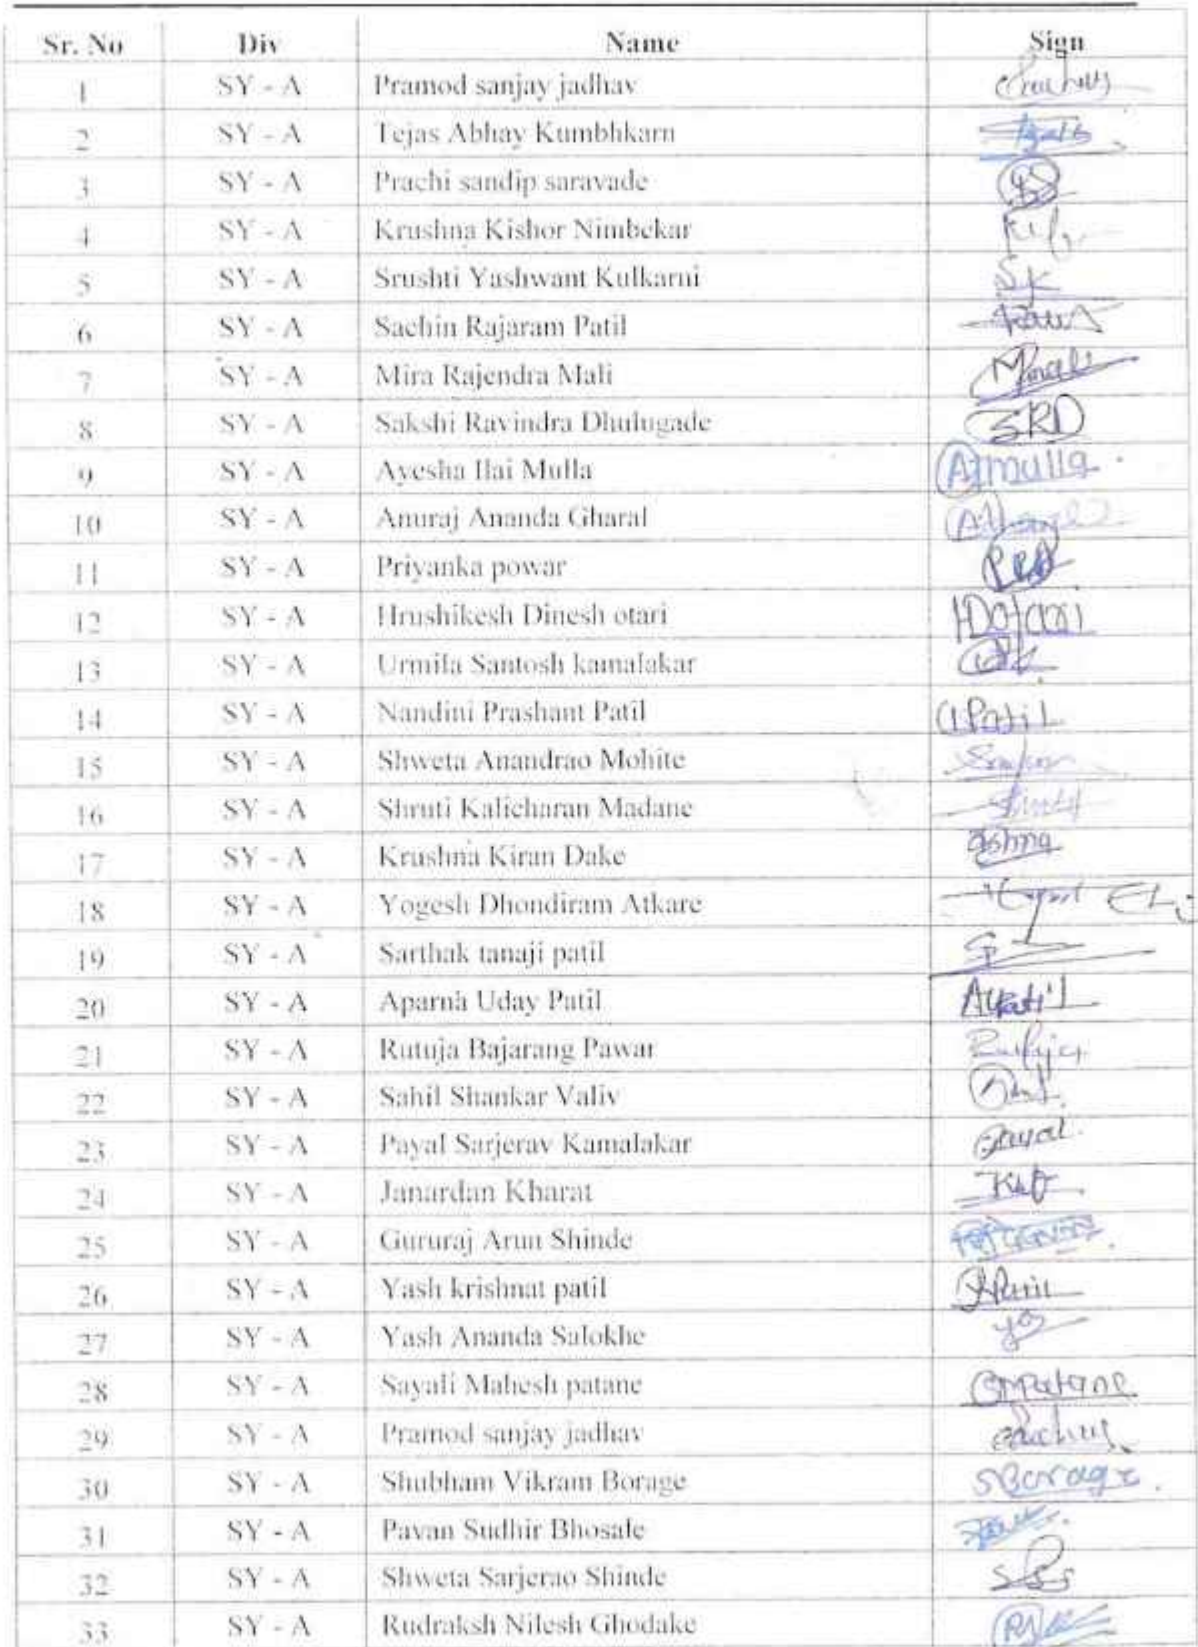 Sr. No Div Name Sign
1 SY - A Pramod sanjay jadhav
2 SY - A Tejas Abhay Kumbhkarn
3 SY - A Prachi sandip saravade
4 SY - A Krushna Kishor Nimbekar
5 SY - A Srushti Yashwant Kulkarni SK
6 SY - A Sachin Rajaram Patil
7 SY - A Mira Rajendra Mali
8 SY - A Sakshi Ravindra Dhulugade SRD
9 SY - A Ayesha Ilai Mulla AIMulla
10 SY - A Anuraj Ananda Gharal
11 SY - A Priyanka powar
12 SY - A Hrushikesh Dinesh otari HDotari
13 SY - A Urmila Santosh kamalakar
14 SY - A Nandini Prashant Patil
15 SY - A Shweta Anandrao Mohite
16 SY - A Shruti Kalicharan Madane
17 SY - A Krushna Kiran Dake
18 SY - A Yogesh Dhondiram Atkare
19 SY - A Sarthak tanaji patil
20 SY - A Aparna Uday Patil AUPatil
21 SY - A Rutuja Bajarang Pawar Rutuja
22 SY - A Sahil Shankar Valiv
23 SY - A Payal Sarjerav Kamalakar Payal
24 SY - A Janardan Kharat
25 SY - A Gururaj Arun Shinde
26 SY - A Yash krishnat patil
27 SY - A Yash Ananda Salokhe
28 SY - A Sayali Mahesh patane SMPatane
29 SY - A Pramod sanjay jadhav
30 SY - A Shubham Vikram Borage SBorage
31 SY - A Pavan Sudhir Bhosale
32 SY - A Shweta Sarjerao Shinde SSS
33 SY - A Rudraksh Nilesh Ghodake